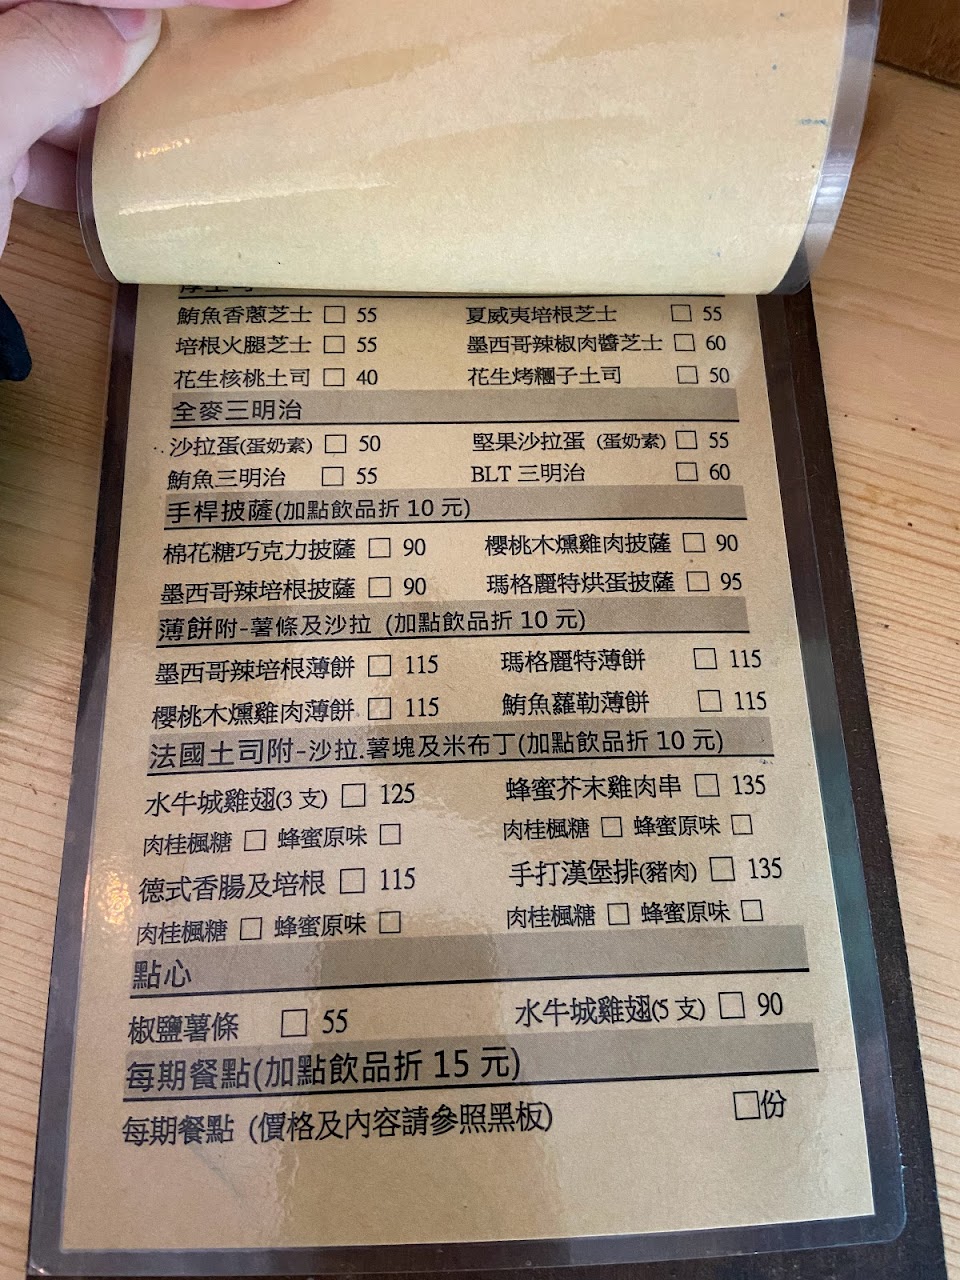 鮪魚香蔥芝士 □ 55 夏威夷培根芝士 □ 55
培根火腿芝士 □ 55 墨西哥辣椒肉醬芝士 □ 60
花生核桃土司 □ 40 花生烤糰子土司 □ 50
全麥三明治
沙拉蛋(蛋奶素) □ 50 堅果沙拉蛋 (蛋奶素) □ 55
鮪魚三明治 □ 55 BLT 三明治 □ 60
手桿披薩(加點飲品折 10 元)
棉花糖巧克力披薩 □ 90 櫻桃木燻雞肉披薩 □ 90
墨西哥辣培根披薩 □ 90 瑪格麗特烘蛋披薩 □ 95
薄餅附-薯條及沙拉 (加點飲品折 10 元)
墨西哥辣培根薄餅 □ 115 瑪格麗特薄餅 □ 115
櫻桃木燻雞肉薄餅 □ 115 鮪魚蘿勒薄餅 □ 115
法國土司附-沙拉.薯塊及米布丁(加點飲品折 10 元)
水牛城雞翅(3 支) □ 125 蜂蜜芥末雞肉串 □ 135
肉桂楓糖 □ 蜂蜜原味 □ 肉桂楓糖 □ 蜂蜜原味 □
德式香腸及培根 □ 115 手打漢堡排(豬肉) □ 135
肉桂楓糖 □ 蜂蜜原味 □ 肉桂楓糖 □ 蜂蜜原味 □
點心
椒鹽薯條 □ 55 水牛城雞翅(5 支) □ 90
每期餐點(加點飲品折 15 元)
每期餐點 (價格及內容請參照黑板) □份